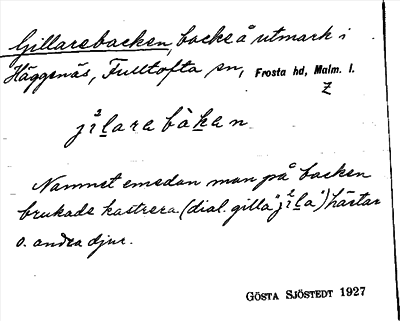 Gillarebacken, backe å utmark i
Häggenäs, Fulltofta sn, Frosta hd, Malm. l.
Z
jìlarebàken
Namnet emedan man på backen
brukade kastrera (dial. gilla "jìla") hästar
o. andra djur.
GÖSTA SJÖSTEDT 1927